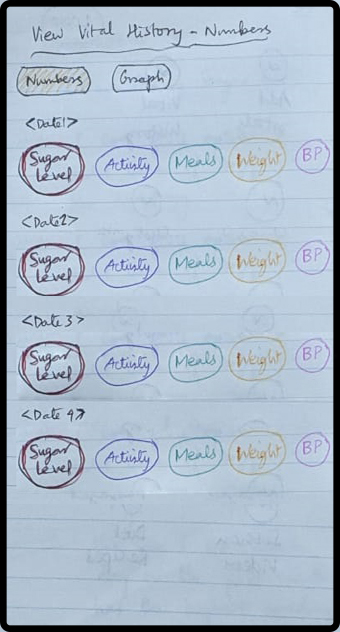 View Vital History - Numbers
Numbers Graph
<Date1>
Sugar Level Activity Meals Weight BP
<Date2>
Sugar Level Activity Meals Weight BP
<Date 3>
Sugar Level Activity Meals Weight BP
<Date 4>
Sugar Level Activity Meals Weight BP